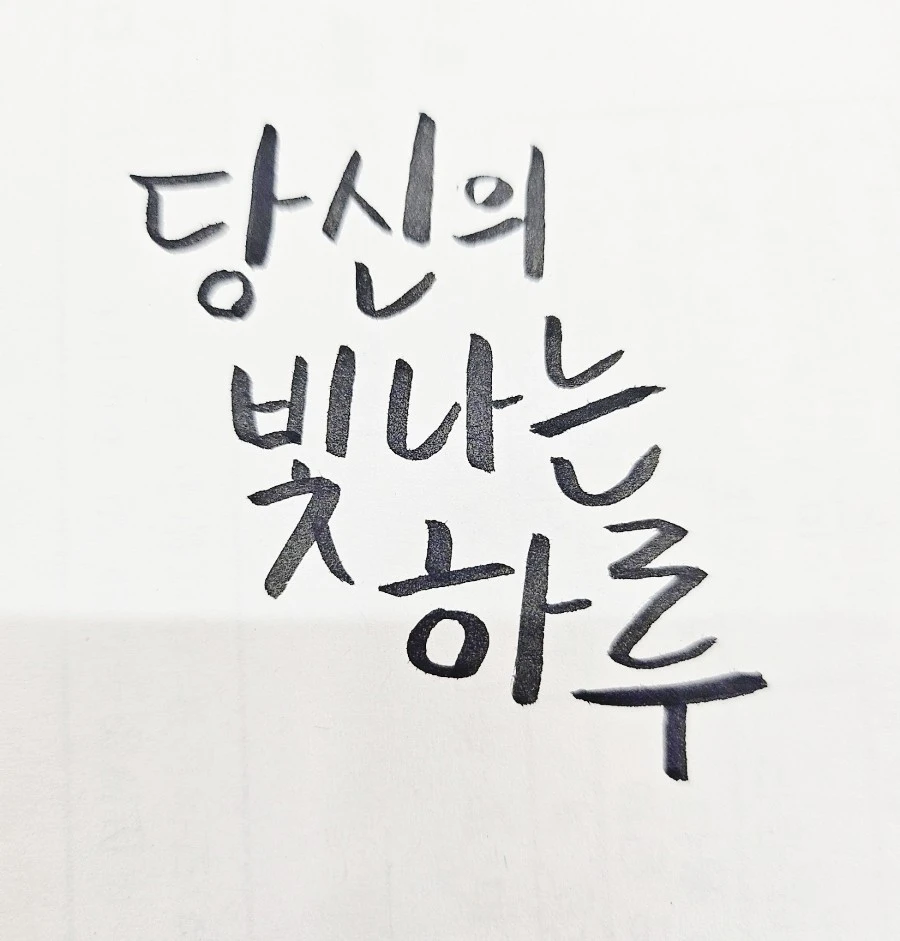 당신의
빛나는
하루